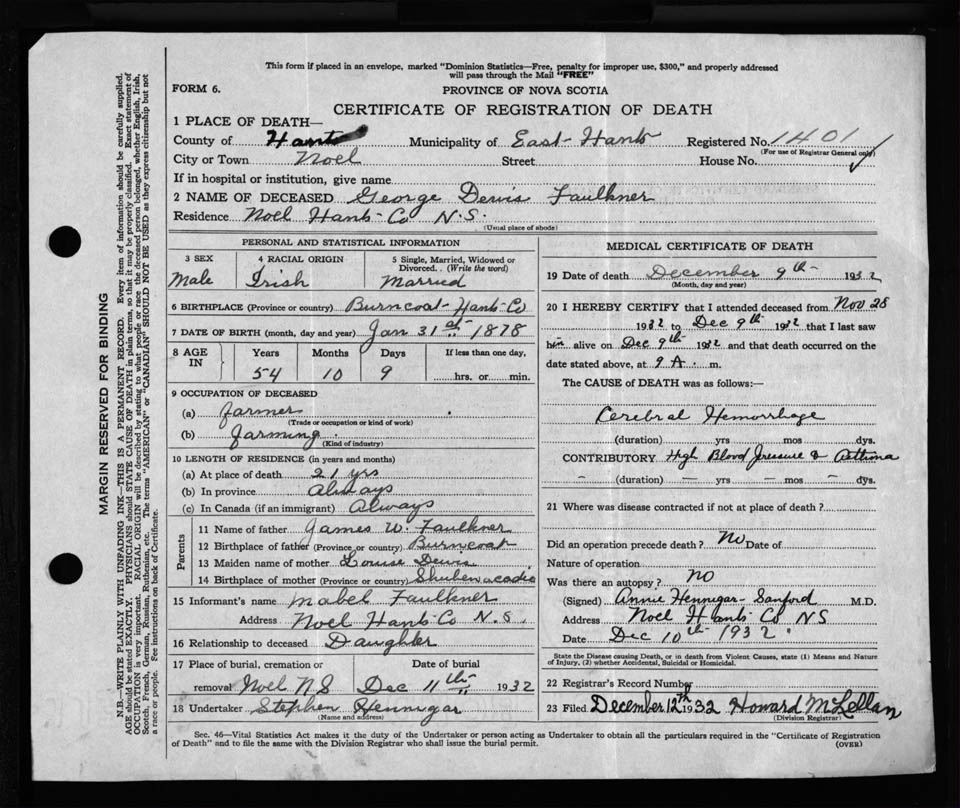 This form if placed in an envelope, marked "Dominion Statistics—Free, penalty for improper use, $300," and properly addressed
will pass through the Mail "FREE"
FORM 6.
PROVINCE OF NOVA SCOTIA
CERTIFICATE OF REGISTRATION OF DEATH
1 PLACE OF DEATH—
County of Hants Municipality of East-Hants Registered No. 1401
(For use of Registrar General only)
City or Town Noel Street House No.
If in hospital or institution, give name
2 NAME OF DECEASED George Dewis Faulkner
Residence Noel Hants-Co N.S.
(Usual place of abode)
PERSONAL AND STATISTICAL INFORMATION
3 SEX 4 RACIAL ORIGIN 5 Single, Married, Widowed or
Divorced. . (Write the word)
Male Irish Married
6 BIRTHPLACE (Province or country) Burncoat-Hants-Co
7 DATE OF BIRTH (month, day and year) Jan 31st 1878
8 AGE IN Years Months Days If less than one day,
54 10 9 hrs. or min.
9 OCCUPATION OF DECEASED
(a) farmer
(Trade or occupation or kind of work)
(b) farming
(Kind of industry)
10 LENGTH OF RESIDENCE (in years and months)
(a) At place of death 21 yrs
(b) In province Always
(c) In Canada (if an immigrant) Always
Parents
11 Name of father James W. Faulkner
12 Birthplace of father (Province or country) Burncoat
13 Maiden name of mother Louise Dewis
14 Birthplace of mother (Province or country) Shubenacadie
15 Informant's name Mabel Faulkner
Address Noel Hants-Co N.S.
16 Relationship to deceased Daughter
17 Place of burial, cremation or Date of burial
removal Noel NS Dec 11th 1932
18 Undertaker Stephen Hennigar
(Name and address)
MEDICAL CERTIFICATE OF DEATH
19 Date of death December 9th 1932
(Month, day and year)
20 I HEREBY CERTIFY that I attended deceased from Nov 28
1932 to Dec 9th 1932 that I last saw
him alive on Dec 9th 1932 and that death occurred on the
date stated above, at 9 A. m.
The CAUSE of DEATH was as follows:—
Cerebral Hemorrhage
(duration) yrs mos dys.
CONTRIBUTORY High Blood Pressure & Asthma
— (duration) — yrs — mos — dys.
21 Where was disease contracted if not at place of death?
Did an operation precede death? No Date of
Nature of operation
Was there an autopsy? no
(Signed) Annie Hennigar-Sanford M.D.
Address Noel Hants Co NS
Date Dec 10th 1932.
State the Disease causing Death, or in death from Violent Causes, state (1) Means and Nature
of Injury, (2) whether Accidental, Suicidal or Homicidal.
22 Registrar's Record Number
23 Filed December 12th 1932 Howard McLellan
(Division Registrar)
Sec. 46—Vital Statistics Act makes it the duty of the Undertaker or person acting as Undertaker to obtain all the particulars required in the "Certificate of Registration
of Death" and to file the same with the Division Registrar who shall issue the burial permit.
(OVER)
MARGIN RESERVED FOR BINDING
N.B.—WRITE PLAINLY WITH UNFADING INK—THIS IS A PERMANENT RECORD. Every item of information should be carefully supplied.
AGE should be stated EXACTLY. PHYSICIANS should STATE CAUSE OF DEATH in plain terms, so that it may be properly classified. Exact statement of
OCCUPATION is very important. RACIAL ORIGIN will be described by stating to what people or race the deceased person belonged, whether English, Irish,
Scotch, French, German, Russian, Ruthenian, etc. The terms "AMERICAN" or "CANADIAN" SHOULD NOT BE USED as they express citizenship but not
a race or people. See instructions on back of Certificate.